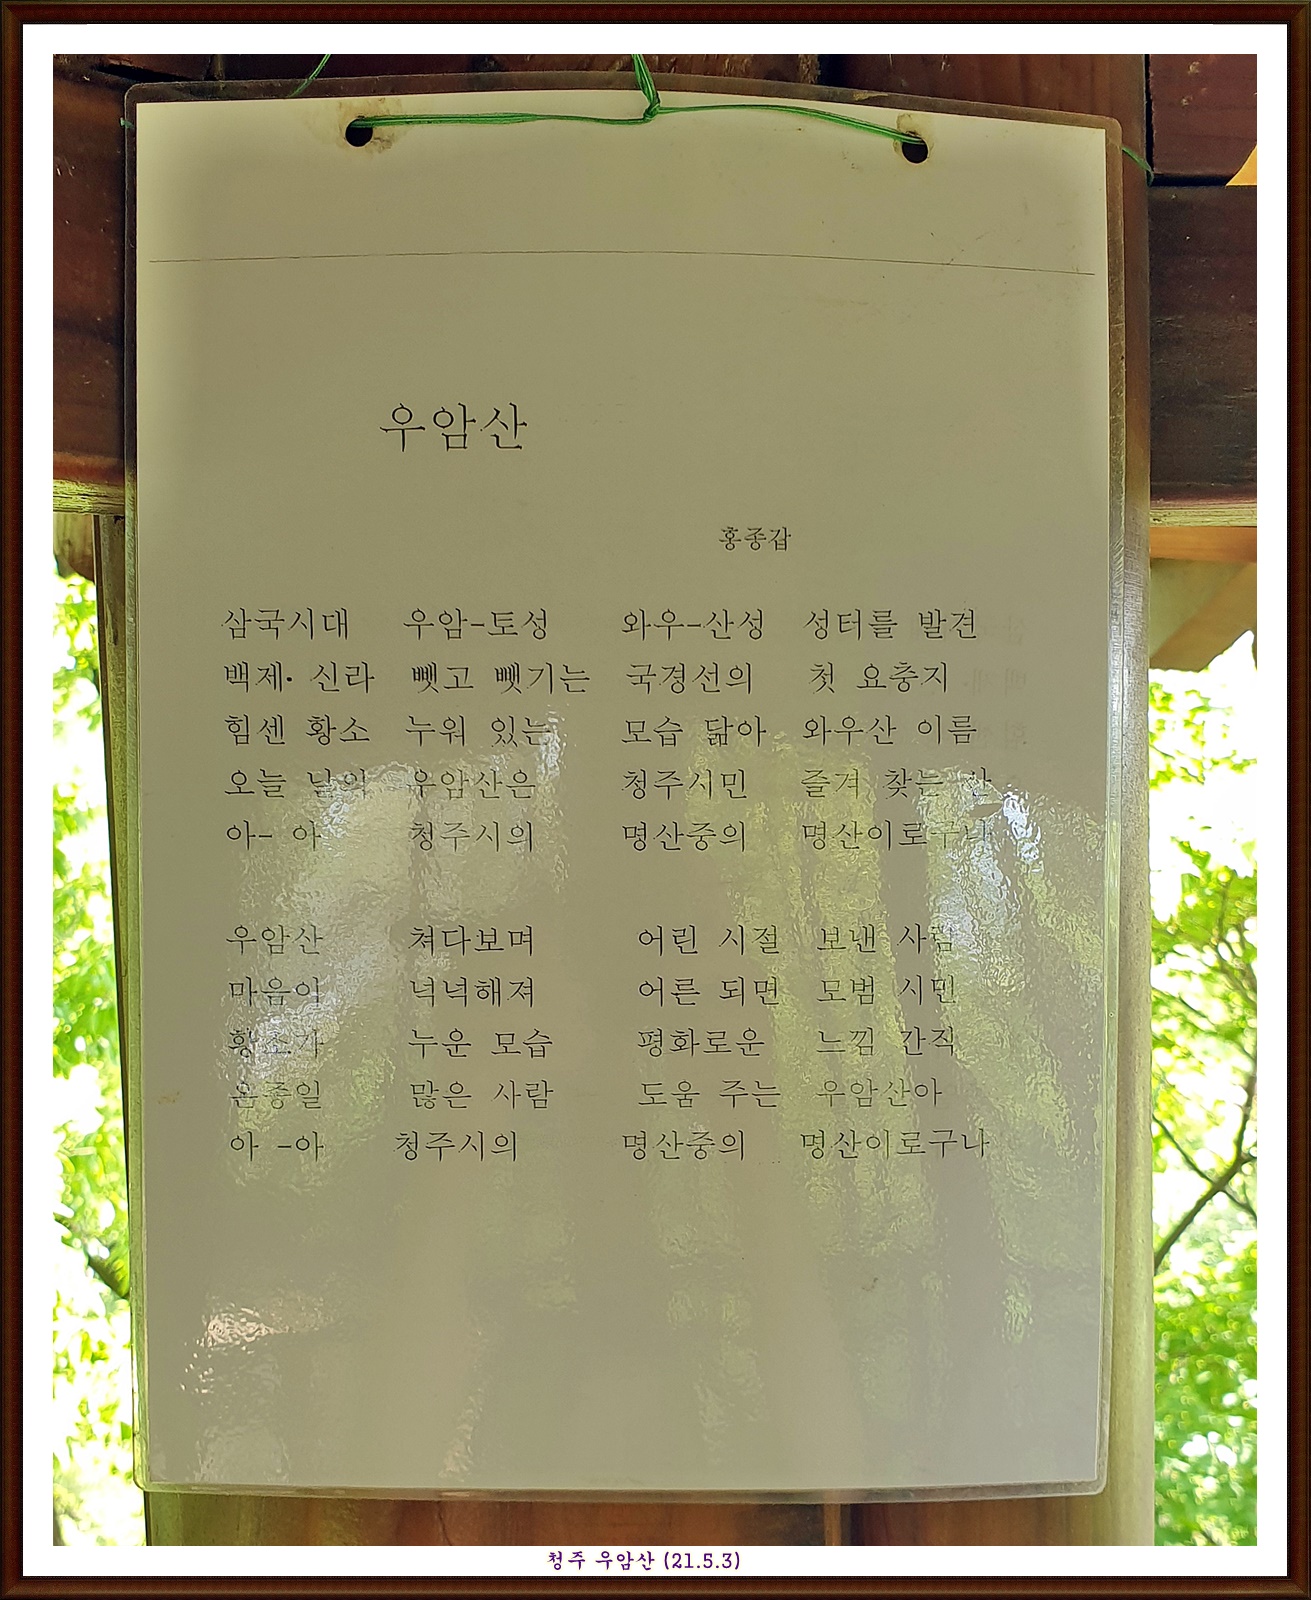 우암산
홍종갑
삼국시대 우암-토성 와우-산성 성터를 발견
백제· 신라 뺏고 뺏기는 국경선의 첫 요충지
힘센 황소 누워 있는 모습 닮아 와우산 이름
오늘 날의 우암산은 청주시민 즐겨 찾는 산
아- 아 청주시의 명산중의 명산이로구나
우암산 쳐다보며 어린 시절 보낸 사람
마음이 넉넉해져 어른 되면 모범 시민
황소가 누운 모습 평화로운 느낌 간직
온종일 많은 사람 도움 주는 우암산아
아 -아 청주시의 명산중의 명산이로구나
청주 우암산 (21.5.3)